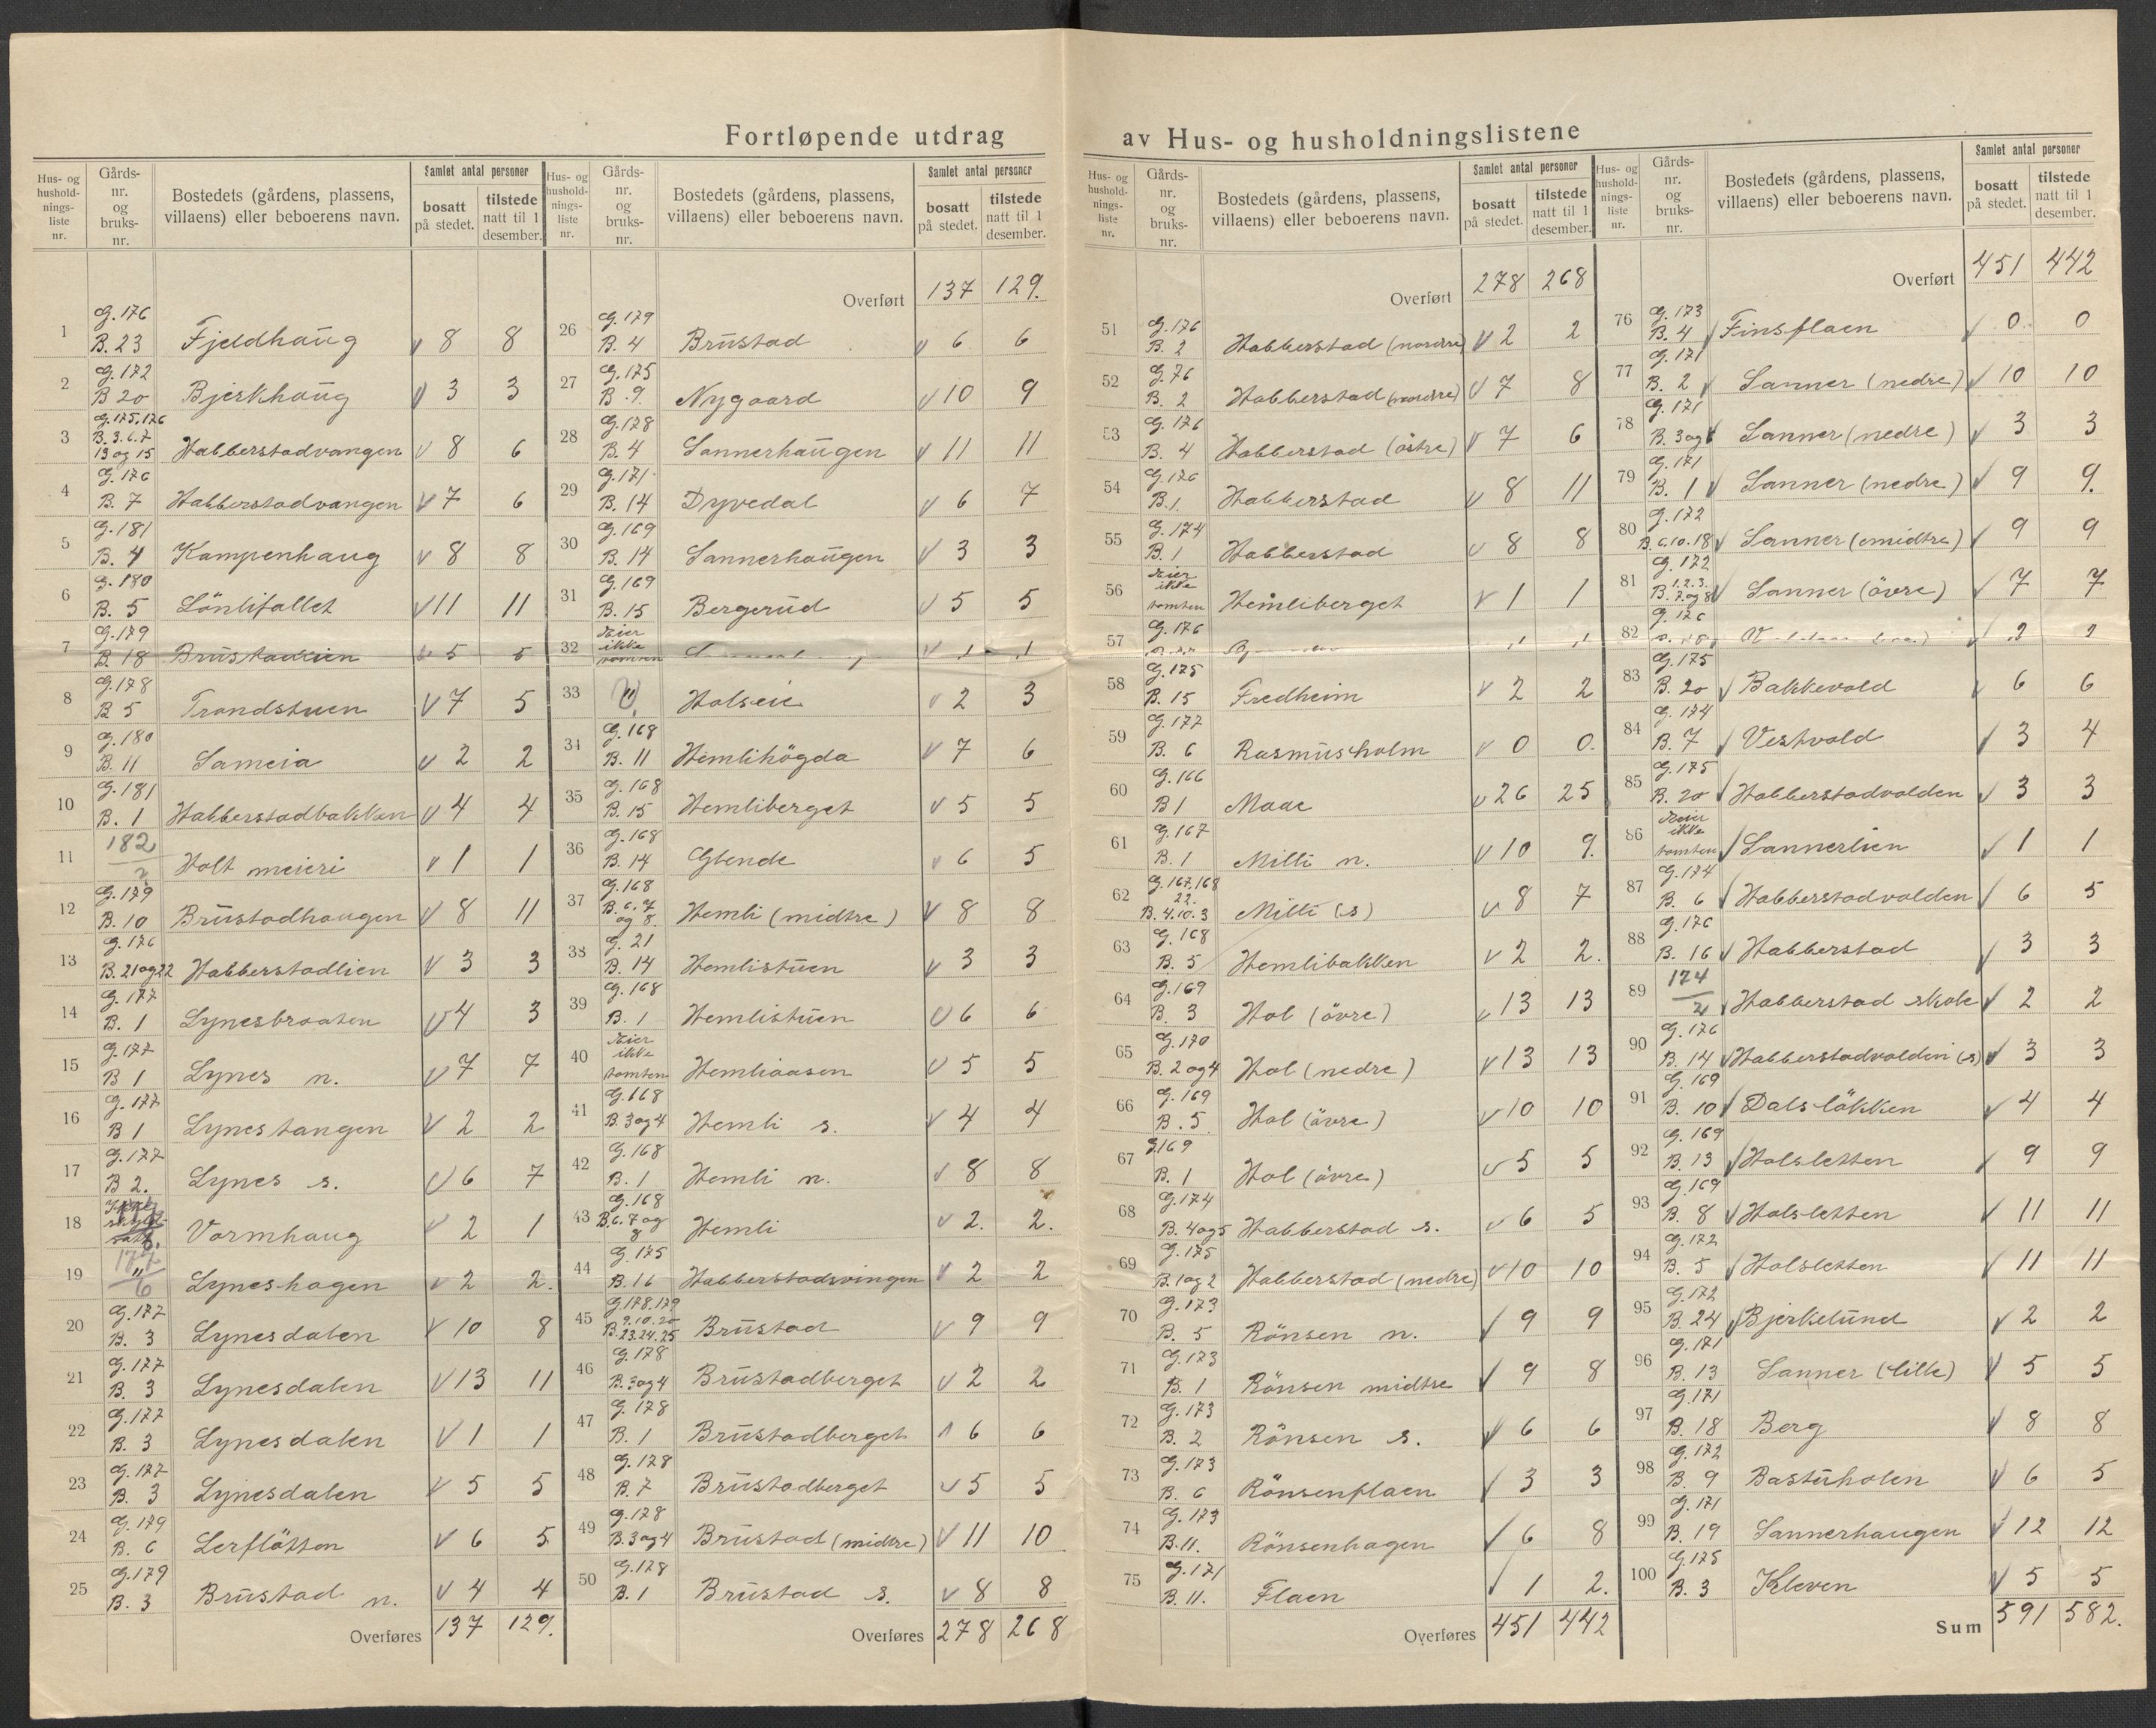 Fortløpende utdrag av Hus- og husholdningslistene
Hus- og husholdnings-liste nr. | Gårds-nr. og bruks-nr. | Bostedets (gårdens, plassens, villaens) eller beboerens navn. | Samlet antal personer | bosatt på stedet. | tilstede natt til 1 desember.
1 G. 176 B. 23 Fjeldhaug v 8 8
2 G. 172 B 20 Bjerkhaug v 3 3
3 G. 175, 176 B. 3. 6. 7 13 og 15 Habberstadvangen v 8 6
4 G. 176 B. 7 Habberstadvangen v 7 6
5 G. 181 B. 4 Kampenhaug v 8 8
6 G. 180 B. 5 Lönlifallet v 11 11
7 G. 179 B. 18 v 5 5
8 G. 178 B 5 Trondstuen v 7 5
9 G. 180 B. 11 Sameia v 2 2
10 G. 181 B. 1 Habberstadbakken v 4 4
11 182 2 Holt meieri v 1 1
12 G. 179 B. 10 Brustadhaugen v 8 11
13 G. 176 B. 21 og 22 Habberstadlien v 3 3
14 G. 177 B. 1 Lynesbraaten v 4 3
15 G. 177 B 1 Lynes n. v 7 7
16 G. 177 B 1 Lynestangen v 2 2
17 G. 177 B 2. Lynes s. v 6 7
18 Vormhaug v 2 1
19 177 6 Lyneshagen v 2 2.
20 G. 177 B. 3 Lynesdalen v 10 8
21 G. 177 B. 3 Lynesdalen v 13 11
22 G. 177 B. 3 Lynesdalen v 1 1
23 G. 177 B. 3 Lynesdalen v 5 5
24 G. 179 B. 6 Lerflötten v 6 5
25 G. 179 B. 3 Brustad n. v 4 4
Overføres 137 129.
Hus- og husholdnings-liste nr. | Gårds-nr. og bruks-nr. | Bostedets (gårdens, plassens, villaens) eller beboerens navn. | Samlet antal personer | bosatt på stedet. | tilstede natt til 1 desember.
Overført 137 129.
26 G. 179 B. 4 Brustad v 6 6
27 G. 175 B. 9. Nygaard v 10 9
28 G. 178 B. 4 Sannerhaugen v 11 11
29 G. 171 B. 14 Dyvedal v 6 7
30 G. 169 B. 14 Sannerhaugen v 3 3
31 G. 169 B. 15 Bergerud v 5 5
32 Eier ikke tomten v 1 1
33 " Holseie v 2 3
34 G. 168 B. 11 Hemlihögda v 7 6
35 G. 168 B. 15 Hemliberget v 5 5
36 G. 168 B. 14 Glende v 6 5
37 G. 168 B. 6. 7 og 8. Hemli (midtre) v 8 8
38 G. 21 B. 14 Hemlistuen v 3 3
39 G. 168 B. 1 Hemlistuen v 6 6
40 Eier ikke tomten Hemliaasen v 5 5
41 G. 168 B. 3 og 4 Hemli s. v 4 4
42 G. 168 B. 1 Hemli n. v 8 8
43 G. 168 B. 6. 7 og 8 Hemli v 2. 2.
44 G. 175 B. 16 Habberstadsvingen v 2 2
45 G. 178. 179 9. 10. 20 B. 23. 24. 25 Brustad v 9 9
46 G. 178 B. 3 og 4 Brustadberget v 2 2
47 G. 178 B. 1 Brustadberget v 6 6
48 G. 178 B. 7 Brustadberget v 5 5
49 G. 178 B. 3 og 4 Brustad (midtre) v 11 10
50 G. 178 B. 1 Brustad s. v 8 8
Overføres 278 268
Hus- og husholdnings-liste nr. | Gårds-nr. og bruks-nr. | Bostedets (gårdens, plassens, villaens) eller beboerens navn. | Samlet antal personer | bosatt på stedet. | tilstede natt til 1 desember.
Overført 278 268
51 G. 176 B. 2 Habberstad (nordre) v 2 2
52 G. 76 B. 2 Habberstad (nordre) v 7 8
53 G. 176 B. 4 Habberstad (östre) v 7 6
54 G. 176 B. 1. Habberstad v 8 11
55 G. 174 B. 1 Habberstad v 8 8
56 Eier ikke tomten Hemliberget v 1 1
57 G. 176 1 1
58 G. 175 B. 15 Fredheim v 2 2
59 G. 177 B. 6 Rasmusholm v 0 0.
60 G. 166 B 1 Maae v 26 25
61 G. 167 B. 1 Milli n. v 10 9.
62 G. 167, 168 22. B. 4. 10. 3 Milli (s) v 8 7
63 G. 168 B. 5 Hemlibakken v 2 2.
64 G. 169 B. 3 Hol (övre) v 13 13
65 G. 170 B. 2 og 4 Hol (nedre) v 13 13
66 G. 169 B. 5 Hol (övre) v 10 10
67 G. 169 B. 1 Hol (övre) v 5 5
68 G. 174 B. 4 og 5 Habberstad s. v 6 5
69 G. 175 B. 1 og 2 Habberstad (nedre) v 10 10
70 G. 173 B. 5 Rönsen n. v 9 9
71 G. 173 B. 1 Rönsen midtre v 9 8
72 G. 173 B. 2 Rönsen s. v 6 6
73 G. 173 B. 6 Rönsenflaen v 3 3
74 G. 173 B. 11. Rönsenhagen v 6 8
75 G. 171 B. 11. Flaen v 1 2.
Overføres 451 442
Hus- og husholdnings-liste nr. | Gårds-nr. og bruks-nr. | Bostedets (gårdens, plassens, villaens) eller beboerens navn. | Samlet antal personer | bosatt på stedet. | tilstede natt til 1 desember.
Overført 451 442
76 G. 173 B. 4 Finsflaen v 0 0
77 G. 171 B. 2 Sanner (nedre) v 10 10
78 G. 171 B. 3 og Sanner (nedre) v 3 3
79 G. 171 B. 1 Sanner (nedre) v 9 9.
80 G. 172 B. 6. 10. 18 Sanner (midtre) v 9 9
81 G. 172 1. 2. 3. B. 7. og 8 Sanner (övre) v 7 7
82 G. 176 v 2 2
83 G. 175 B. 20 Bakkevold v 6 6
84 G. 174 B. 7 Vestvold v 3 4
85 G. 175 B. 20 Habberstadvolden v 3 3
86 Eier ikke tomten Sannerlien v 1 1
87 G. 174 B. 6 Habberstadvolden v 6 5
88 G. 176 B. 16 Habberstad v 3 3
89 174 2 Habberstad skole v 2 2
90 G. 176 B. 14 Habberstadvolden (s) v 3 3
91 G. 169 B. 10 Dalslökken v 4 4
92 G. 169 B. 13 Holsletten v 9 9
93 G. 169 B. 8 Holsletten v 11 11
94 G. 172 B. 5 Holsletten v 11 11
95 G. 172 B. 24 Bjerkelund v 2 2
96 G. 171 B. 13 Sanner (lille) v 5 5
97 G. 171 B. 18 Berg v 8 8
98 G. 172 B. 9 Basturholen v 6 5
99 G. 171 B. 19 Sannerhaugen v 12 12
100 G. 175 B. 3 Kleven v 5 5
Sum 591 582.